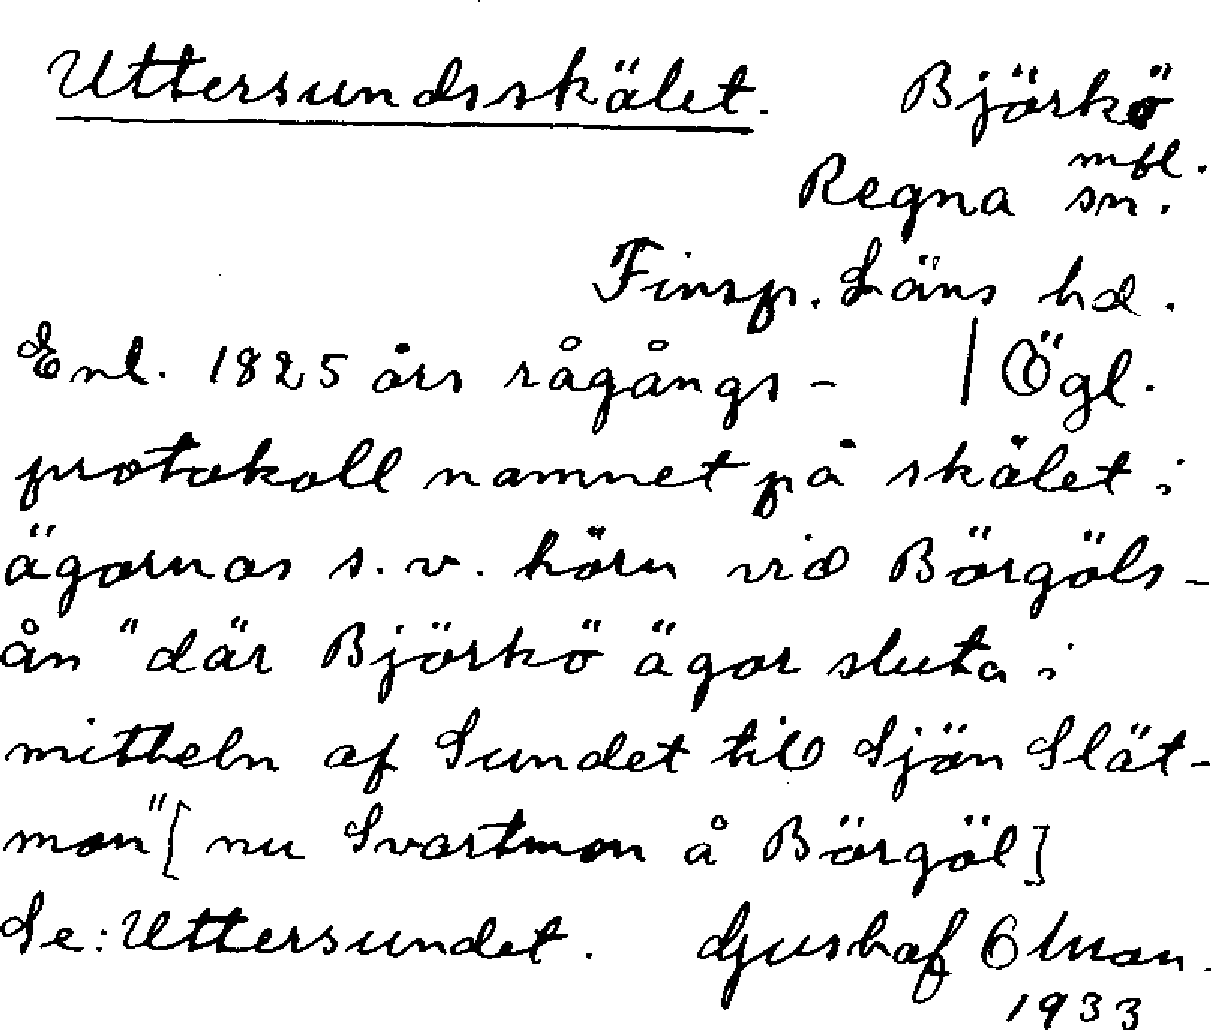 Uttersundsskälet. Björkö
mfl.
Regna sn.
Finsp. Läns hd.
Enl. 1825 års rågångs- | Ögl.
protokoll namnet på skälet i
ägornas s.v. hörn vid Börgöls-
ån "där Björkö ägor sluta i
mitheln af Sundet till Sjön Slät-
mon" [nu Svartmon å Börgöl]
Se: Uttersundet. Gustaf Ohman.
1933